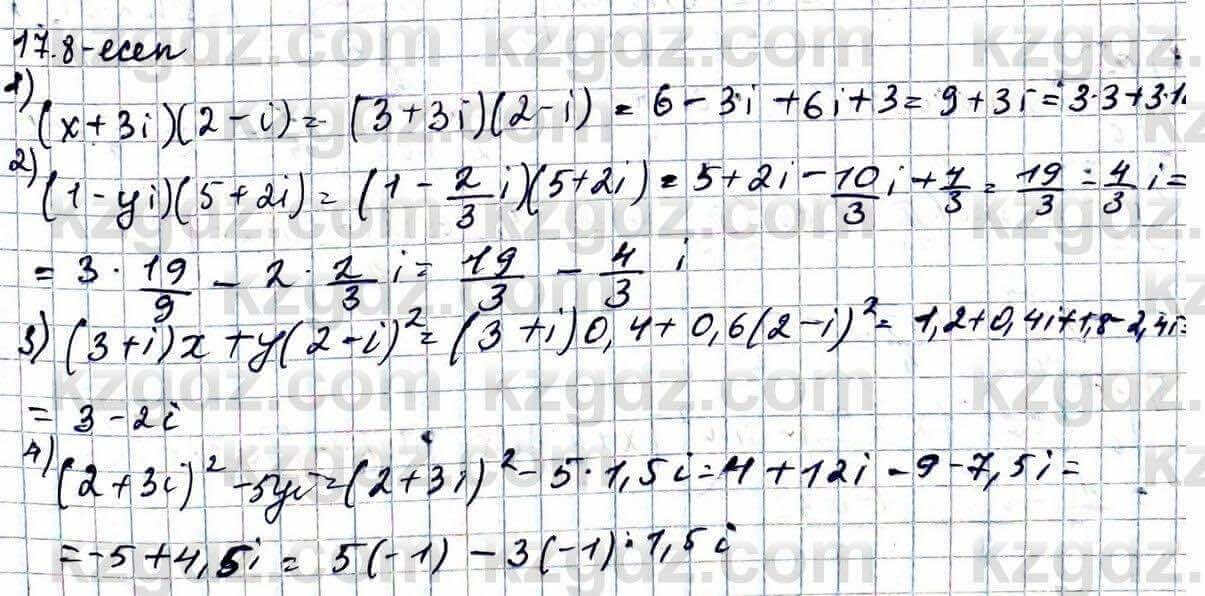 17.8-есеп
1) (x+3i)(2-i) = (3+3i)(2-i) = 6-3i+6i+3 = 9+3i = 3·3+3·1.
2) (1-yi)(5+2i) = (1-2/3 i)(5+2i) = 5+2i-10/3 i+4/3 = 19/3 - 4/3 i =
= 3·19/9 - 2·2/3 i = 19/3 - 4/3 i
3) (3+i)x+y(2-i)² = (3+i)0,4+0,6(2-i)² = 1,2+0,4i+1,8-2,4i=
= 3-2i
4) (2+3i)²-5yi = (2+3i)²-5·1,5i = 4+12i-9-7,5i =
= -5+4,5i = 5(-1)-3(-1)·1,5i
kzgdz.com